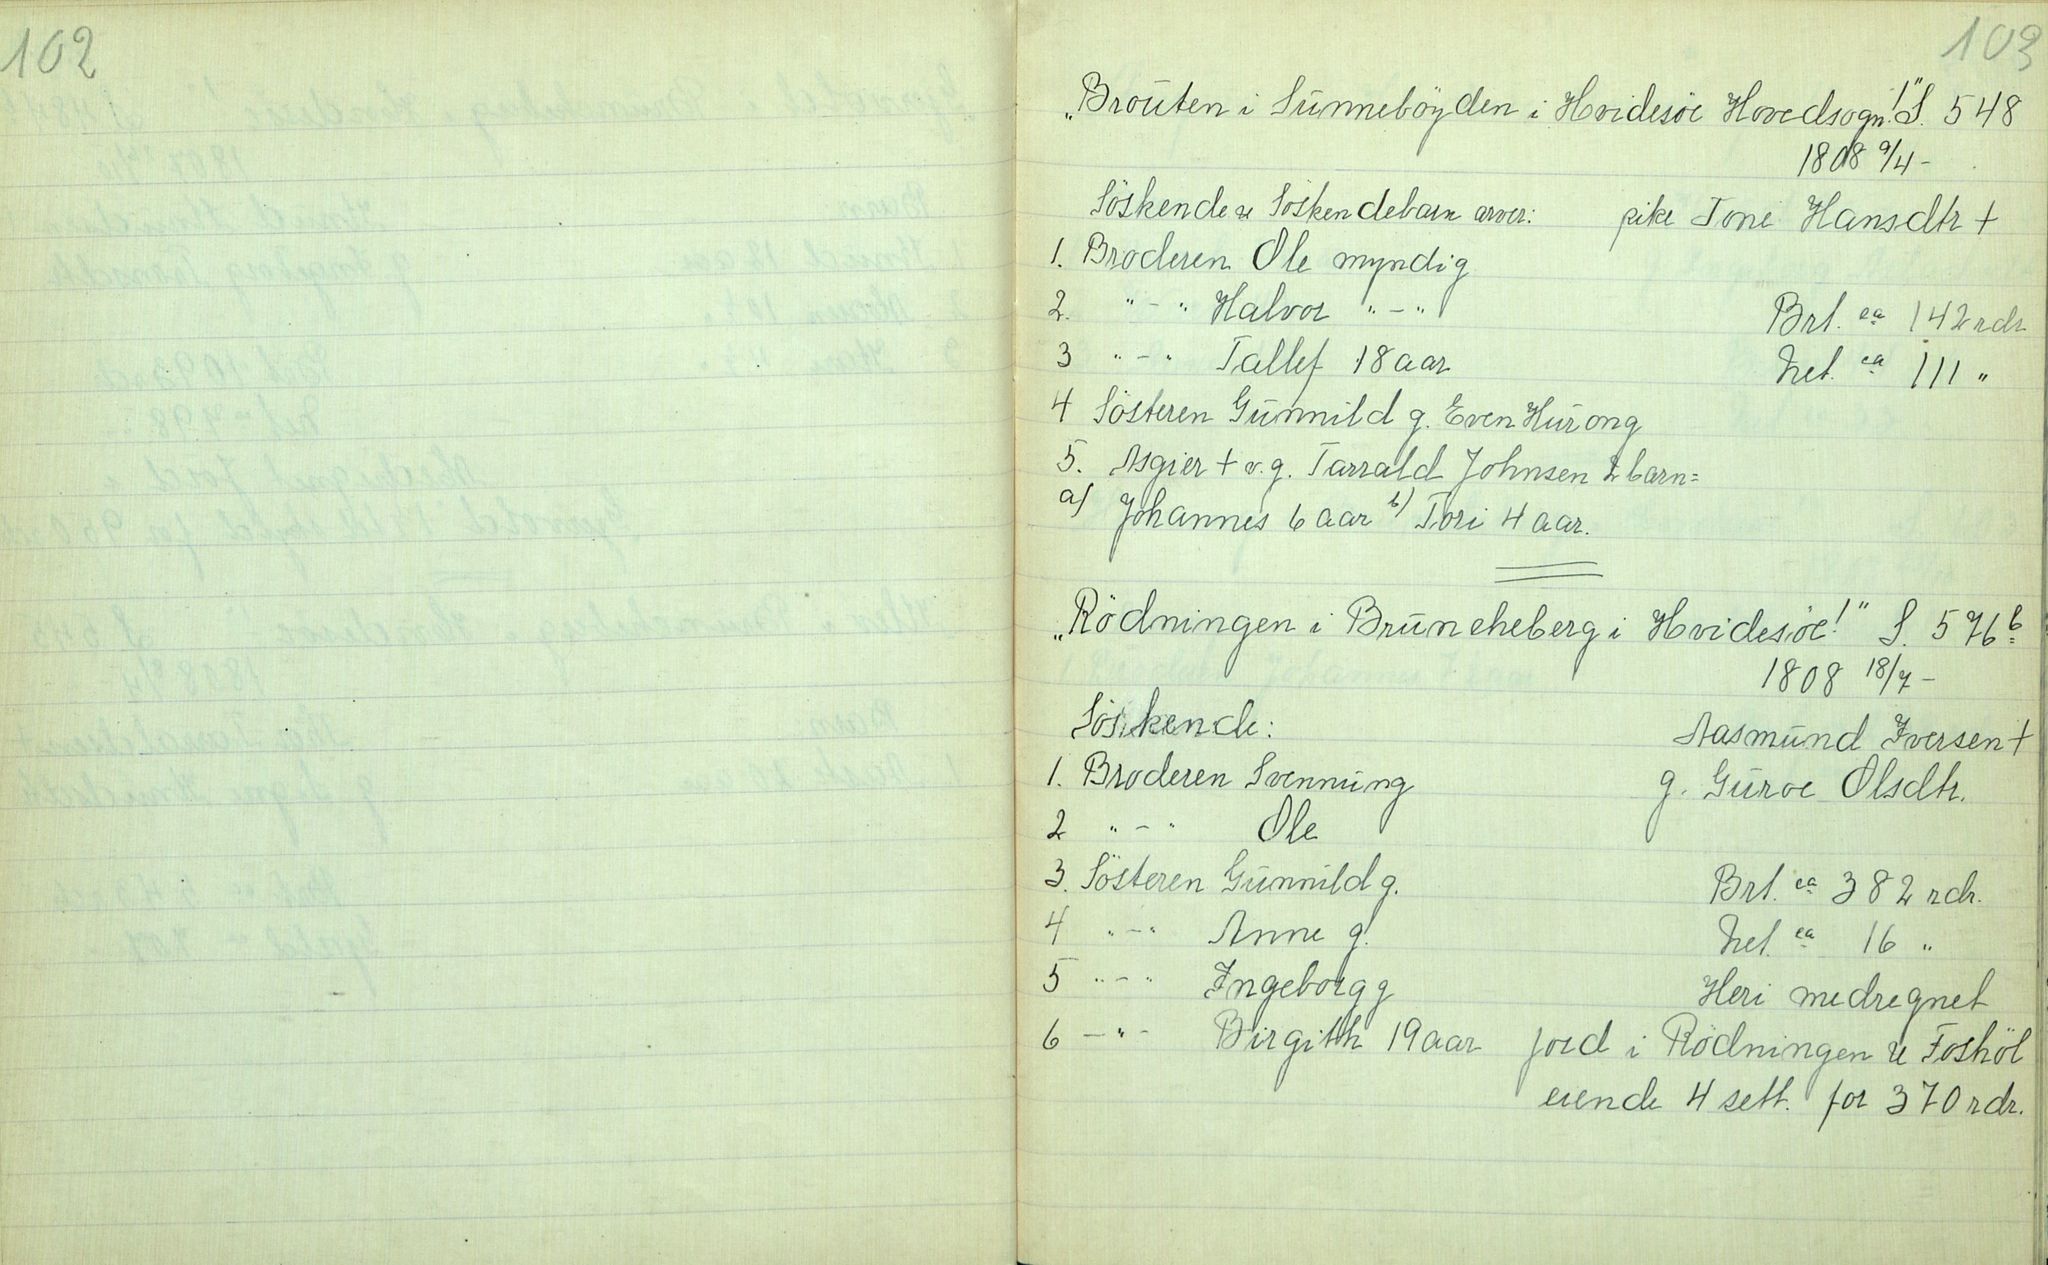 102
103
„Brouten i Sunnebøyden i Hvidesøe Hovedsogn!" S. 548
1808 9/4 -
Söskende & Söskendebarn arver: pike Tone Hansdtr +
1. Broderen Ole myndig
2. " - " Halvor " - " Brt. ca 142 rdr
3 " - " Tallef 18 aar Net. ca 111 "
4 Sösteren Gunnild g. Even Hurong
5. Asgier + v. g. Tarrald Johnsen 2 barn =
a) Johannes 6 aar b) Tori 4 aar.
„Rödningen i Bruncheberg i Hvidesöe!" S. 576 b
1808 18/7 -
Söskende: Aasmund Iversen +
1. Broderen Svennung g. Guroe Olsdtr.
2 " - " Ole
3. Sösteren Gunnild g. Brt. ca 382 rdr.
4 " - " Anne g. Net. ca 16 "
5 " - " Ingeborg g Heri medregnet
6 - " - Birgith 19 aar jord i Rödningen & Foshöl
eiende 4 sett. for 370 rdr.